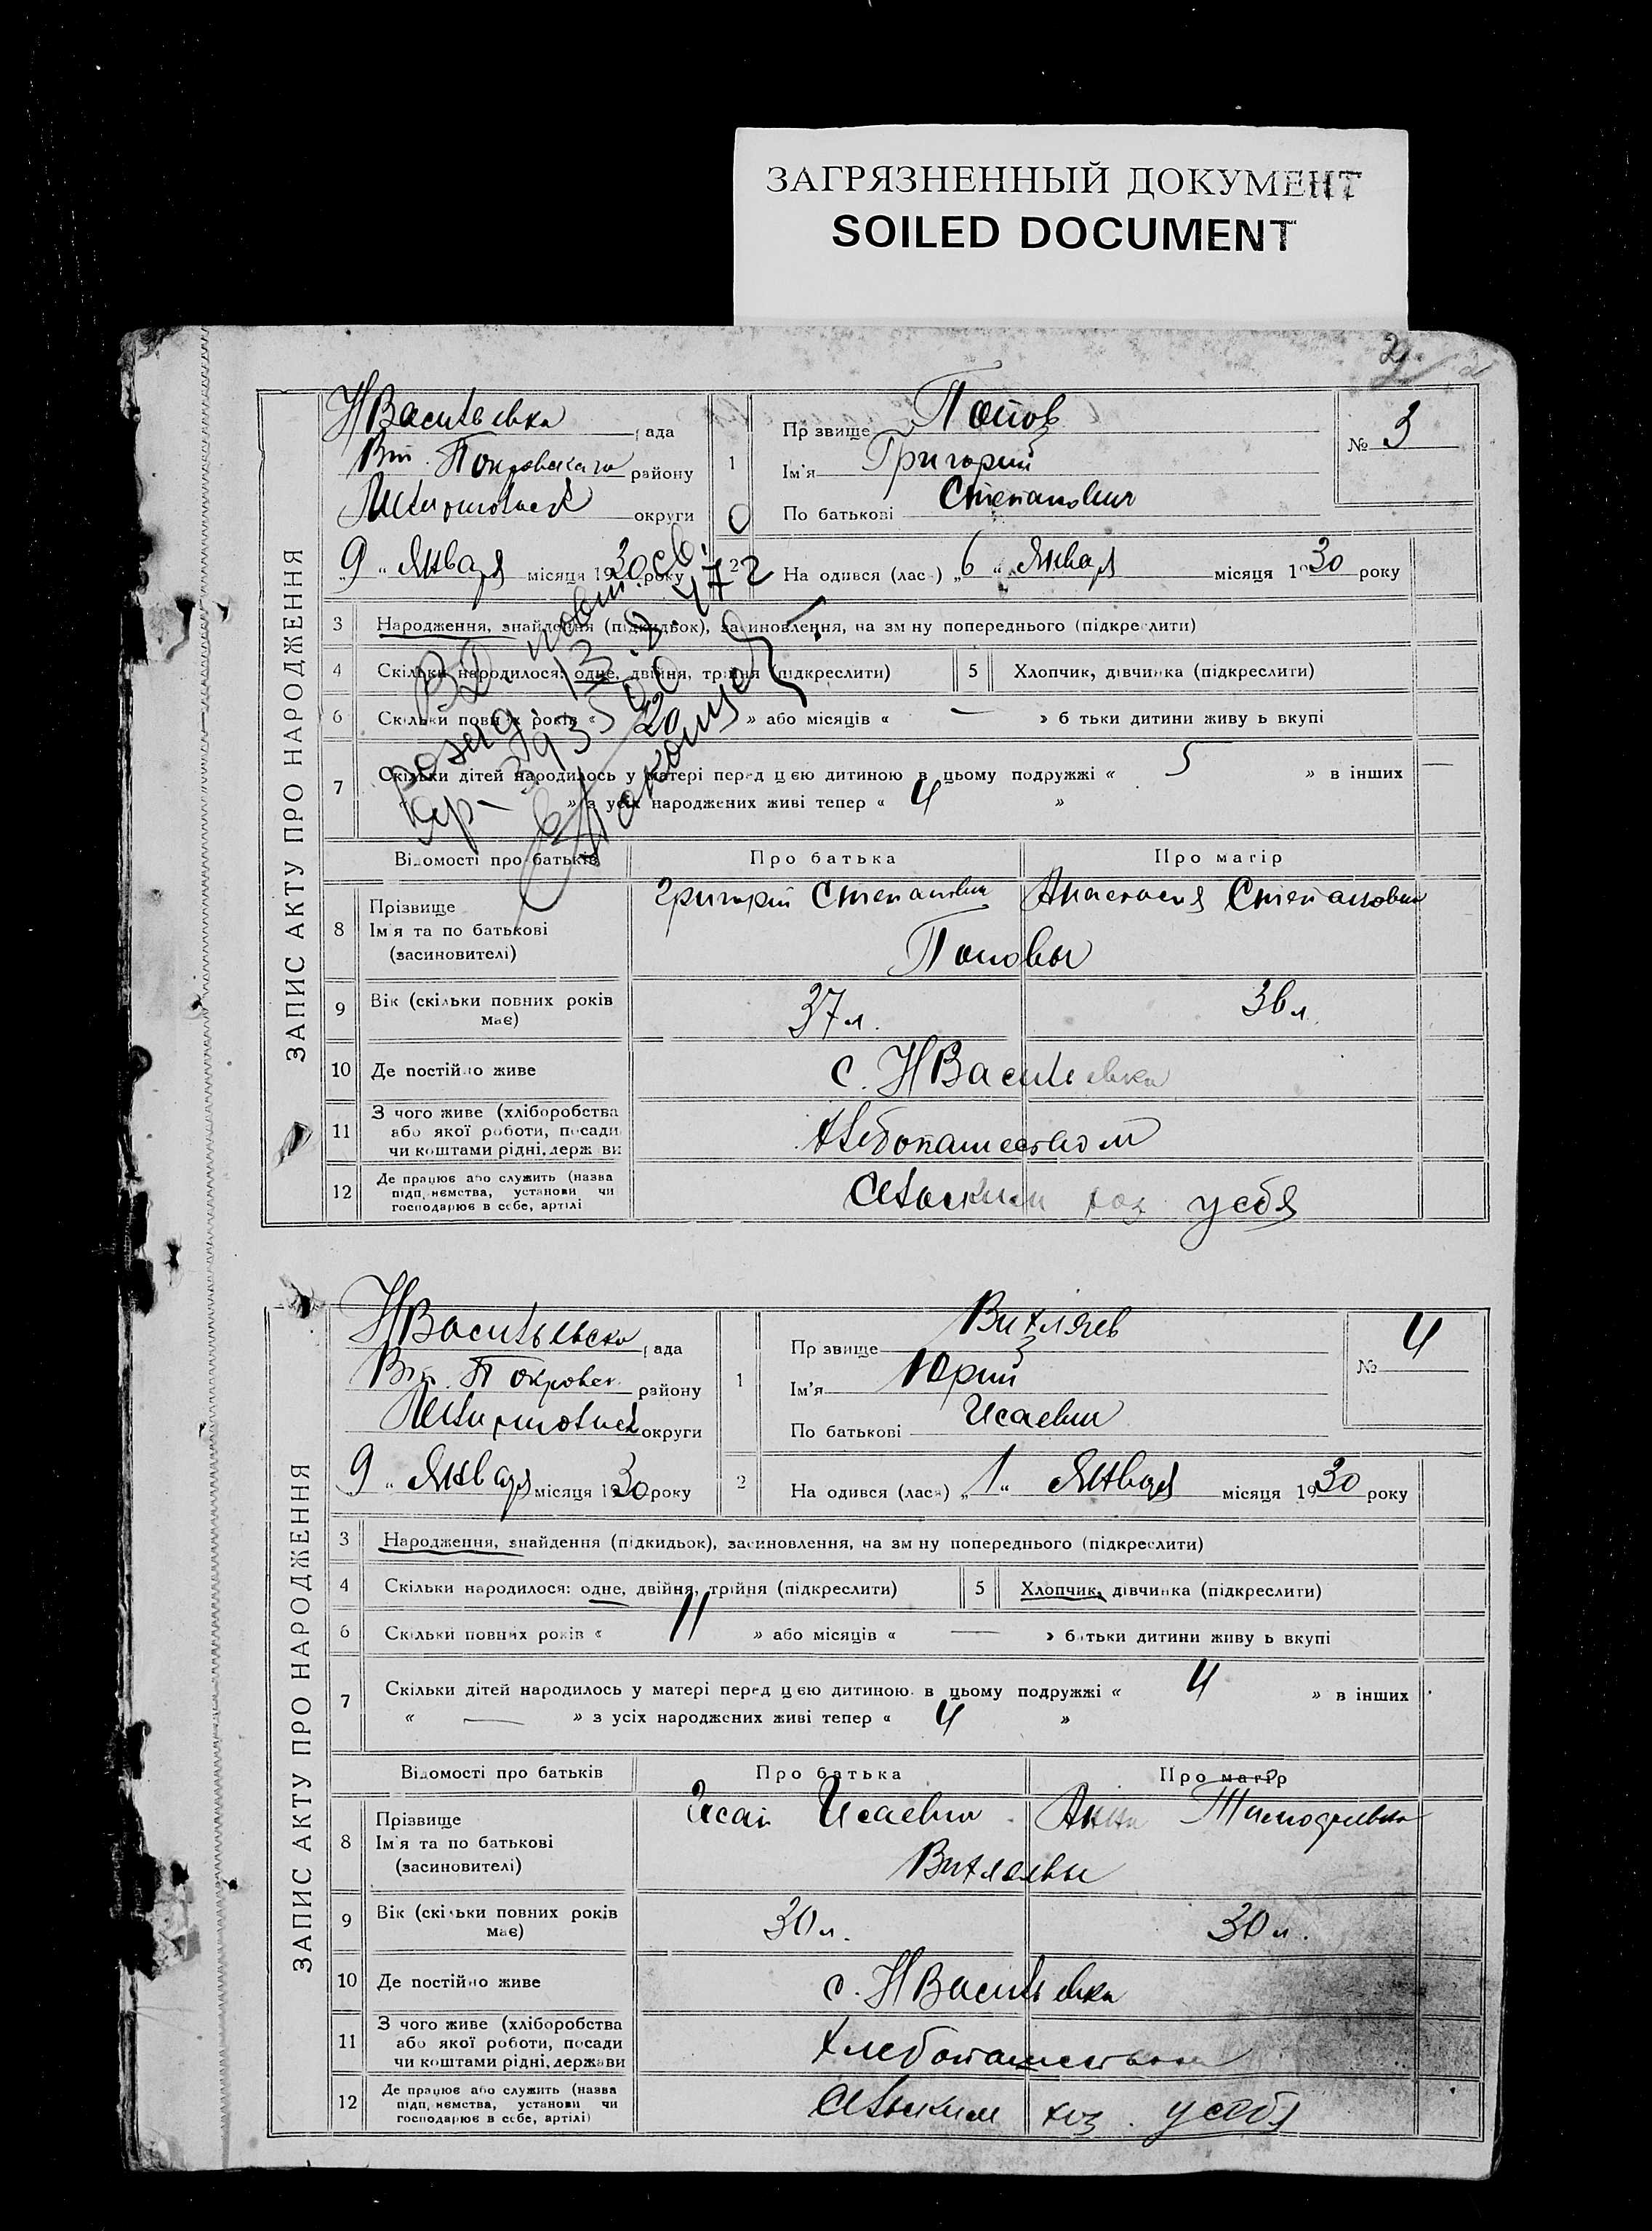 ЗАГРЯЗНЕННЫЙ ДОКУМЕНТ
SOILED DOCUMENT
2
ЗАПИС АКТУ ПРО НАРОДЖЕННЯ
НВасильевка рада
Вт. Покровского району
округи
„9“ Января місяця 1930 року
1
Прізвище Попов
Ім'я Григорий
По батькові Степанович
№ 3
2 На одився (лась) „6“ Января місяця 1930 року
3 Народження, знайдення (підкидьок), засиновлення, на зміну попереднього (підкреслити)
4 Скільки народилося: одне, двійня, трійня (підкреслити)
5 Хлопчик, дівчинка (підкреслити)
6 Скільки повних років « 20 » або місяців « — » батьки дитини живуть вкупі
7 Скільки дітей народилось у матері перед цією дитиною в цьому подружжі « 5 » в інших —
« » з усіх народжених живі тепер « 4 »
Відомості про батьків
Про батька
Про матір
8 Прізвище
Ім'я та по батькові
(засиновителі)
Григорий Степанович
Анастасия Степановна
Поповы
9 Вік (скільки повних років має)
37 л.
36 л.
10 Де постійно живе
с. НВасильевка
11 З чого живе (хліборобства
або якої роботи, посади
чи коштами рідні, держави
Хлебопашеством
12 Де працює або служить (назва
підприємства, установи чи
господарює в себе, артілі
сельским хоз у себя
ЗАПИС АКТУ ПРО НАРОДЖЕННЯ
НВасильевска рада
Вт. Покровск. району
округи
„9“ Января місяця 1930 року
1
Прізвище Витляев
Ім'я Юрий
По батькові Исаевич
№ 4
2 На одився (лась) „1“ Января місяця 1930 року
3 Народження, знайдення (підкидьок), засиновлення, на зміну попереднього (підкреслити)
4 Скільки народилося: одне, двійня, трійня (підкреслити)
5 Хлопчик, дівчинка (підкреслити)
6 Скільки повних років « 11 » або місяців « — » батьки дитини живуть вкупі
7 Скільки дітей народилось у матері перед цією дитиною в цьому подружжі « 4 » в інших
« — » з усіх народжених живі тепер « 4 »
Відомості про батьків
Про батька
Про матір
8 Прізвище
Ім'я та по батькові
(засиновителі)
Исай Исаевич
Анна Тимофеевна
Витляевы
9 Вік (скільки повних років має)
30 л.
30 л.
10 Де постійно живе
с. НВасильевка
11 З чого живе (хліборобства
або якої роботи, посади
чи коштами рідні, держави
Хлебопашеством
12 Де працює або служить (назва
підприємства, установи чи
господарює в себе, артілі)
сельским хоз. у себя